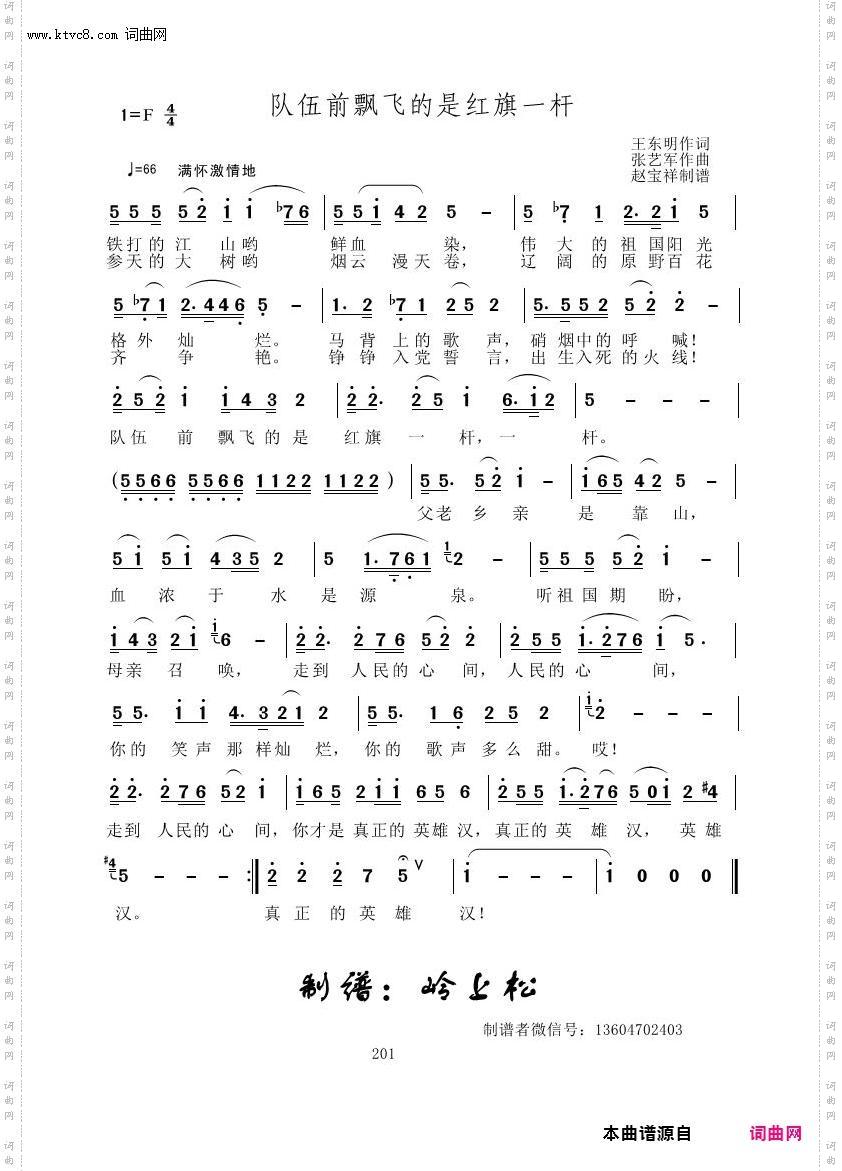 www.ktvc8.com 词曲网
队伍前飘飞的是红旗一杆
1=F 4/4
王东明作词
张艺军作曲
赵宝祥制谱
♩=66 满怀激情地
5 5 5 5 2 1 1 ♭7 6 | 5 5 1 4 2 5 - | 5 ♭7 1 2. 2 1 5 |
铁打的江 山哟 鲜血 染， 伟 大 的 祖 国阳 光
参天的大 树哟 烟云 漫天 卷， 辽 阔 的 原 野百 花
5 ♭7 1 2. 4 4 6 5 - | 1. 2 ♭7 1 2 5 2 | 5. 5 5 2 5 2 2 - |
格 外 灿 烂。 马 背 上 的 歌 声，硝 烟中 的 呼 喊！
齐 争 艳。 铮 铮 入 党 誓 言，出 生入 死 的 火 线！
2 5 2 1 1 4 3 2 | 2 2. 2 5 1 6. 1 2 | 5 - - - |
队伍 前 飘飞 的 是 红旗 一 杆，一 杆。
(5 5 6 6 5 5 6 6 1 1 2 2 1 1 2 2) | 5 5. 5 2 1 - | 1 6 5 4 2 5 - |
父老 乡 亲 是 靠 山，
5 1 5 1 4 3 5 2 | 5 1. 7 6 1 1 2 - | 5 5 5 5 2 1 - |
血 浓 于 水 是 源 泉。 听祖 国 期 盼，
1 4 3 2 1 1 6 - | 2 2. 2 7 6 5 2 2 | 2 5 5 1. 2 7 6 1 5. |
母亲 召 唤， 走到 人民的 心 间，人民的 心 间，
5 5. 1 1 4. 3 2 1 2 | 5 5. 1 6 2 5 2 | 1 2 - - - |
你的 笑 声 那 样灿 烂， 你的 歌 声 多 么 甜。 哎！
2 2. 2 7 6 5 2 1 | 1 6 5 2 1 1 6 5 6 | 2 5 5 1. 2 7 6 5 0 1 2 ♯4 |
走到 人民的 心 间，你才是 真正的 英雄 汉，真正的 英 雄 汉， 英雄
♯4 5 - - - :| 2 2 2 7 5 ∨ | 1 - - - | 1 0 0 0 ||
汉。 真 正 的 英 雄 汉！
制谱：岭上松
制谱者微信号：13604702403
201
本曲谱源自 词曲网